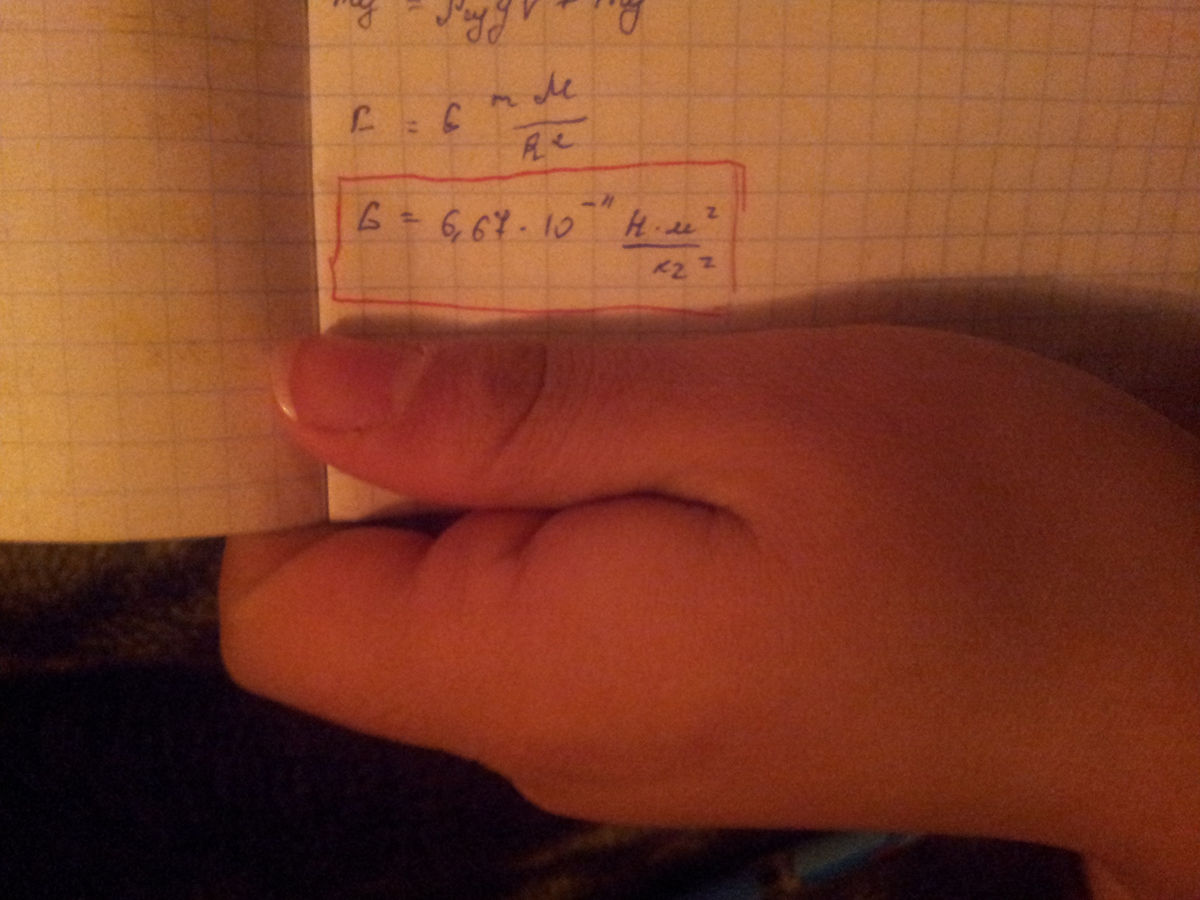 F = G m M / R²
G = 6,67 · 10⁻¹¹ Н·м² / кг²